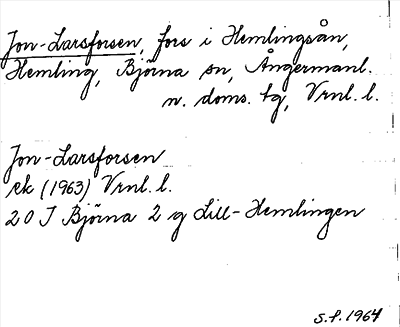 Jon-Larsforsen, fors i Hemlingsån,
Hemling, Björna sn, Ångermanl.
n. doms. tg, Vrnl. l.
Jon-Larsforsen
ek (1963) Vrnl. l.
20 J Björna 2 g Lill-Hemlingen
S.P. 1964